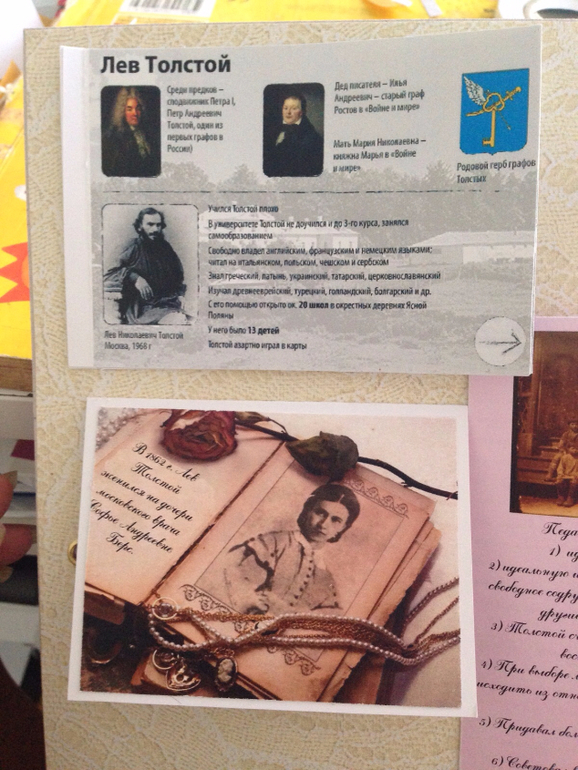 Лев Толстой
Среди предков –
сподвижник Петра I,
Петр Андреевич
Толстой, один из
первых графов в
России)
Дед писателя – Илья
Андреевич – старый граф
Ростов в «Войне и мире»
Мать Мария Николаевна –
княжна Марья в «Войне
и мире»
Родовой герб графов
Толстых
Учился Толстой плохо
В университете Толстой не доучился и до 3-го курса, занялся
самообразованием
Свободно владел английским, французским и немецким языками;
читал на итальянском, польском, чешском и сербском
Знал греческий, латынь, украинский, татарский, церковнославянский
Изучал древнееврейский, турецкий, голландский, болгарский и др.
С его помощью открыто ок. 20 школ в окрестных деревнях Ясной
Поляны
У него было 13 детей
Толстой азартно играл в карты
Лев Николаевич Толстой
Москва, 1968 г
В 1862 г. Лев
Толстой
женился на дочери
московского врача
Софье Андреевне
Берс.
1)
2) идеальную
свободное
3) Толстой
4) При выборе
исходить из
5) Придавал
6)